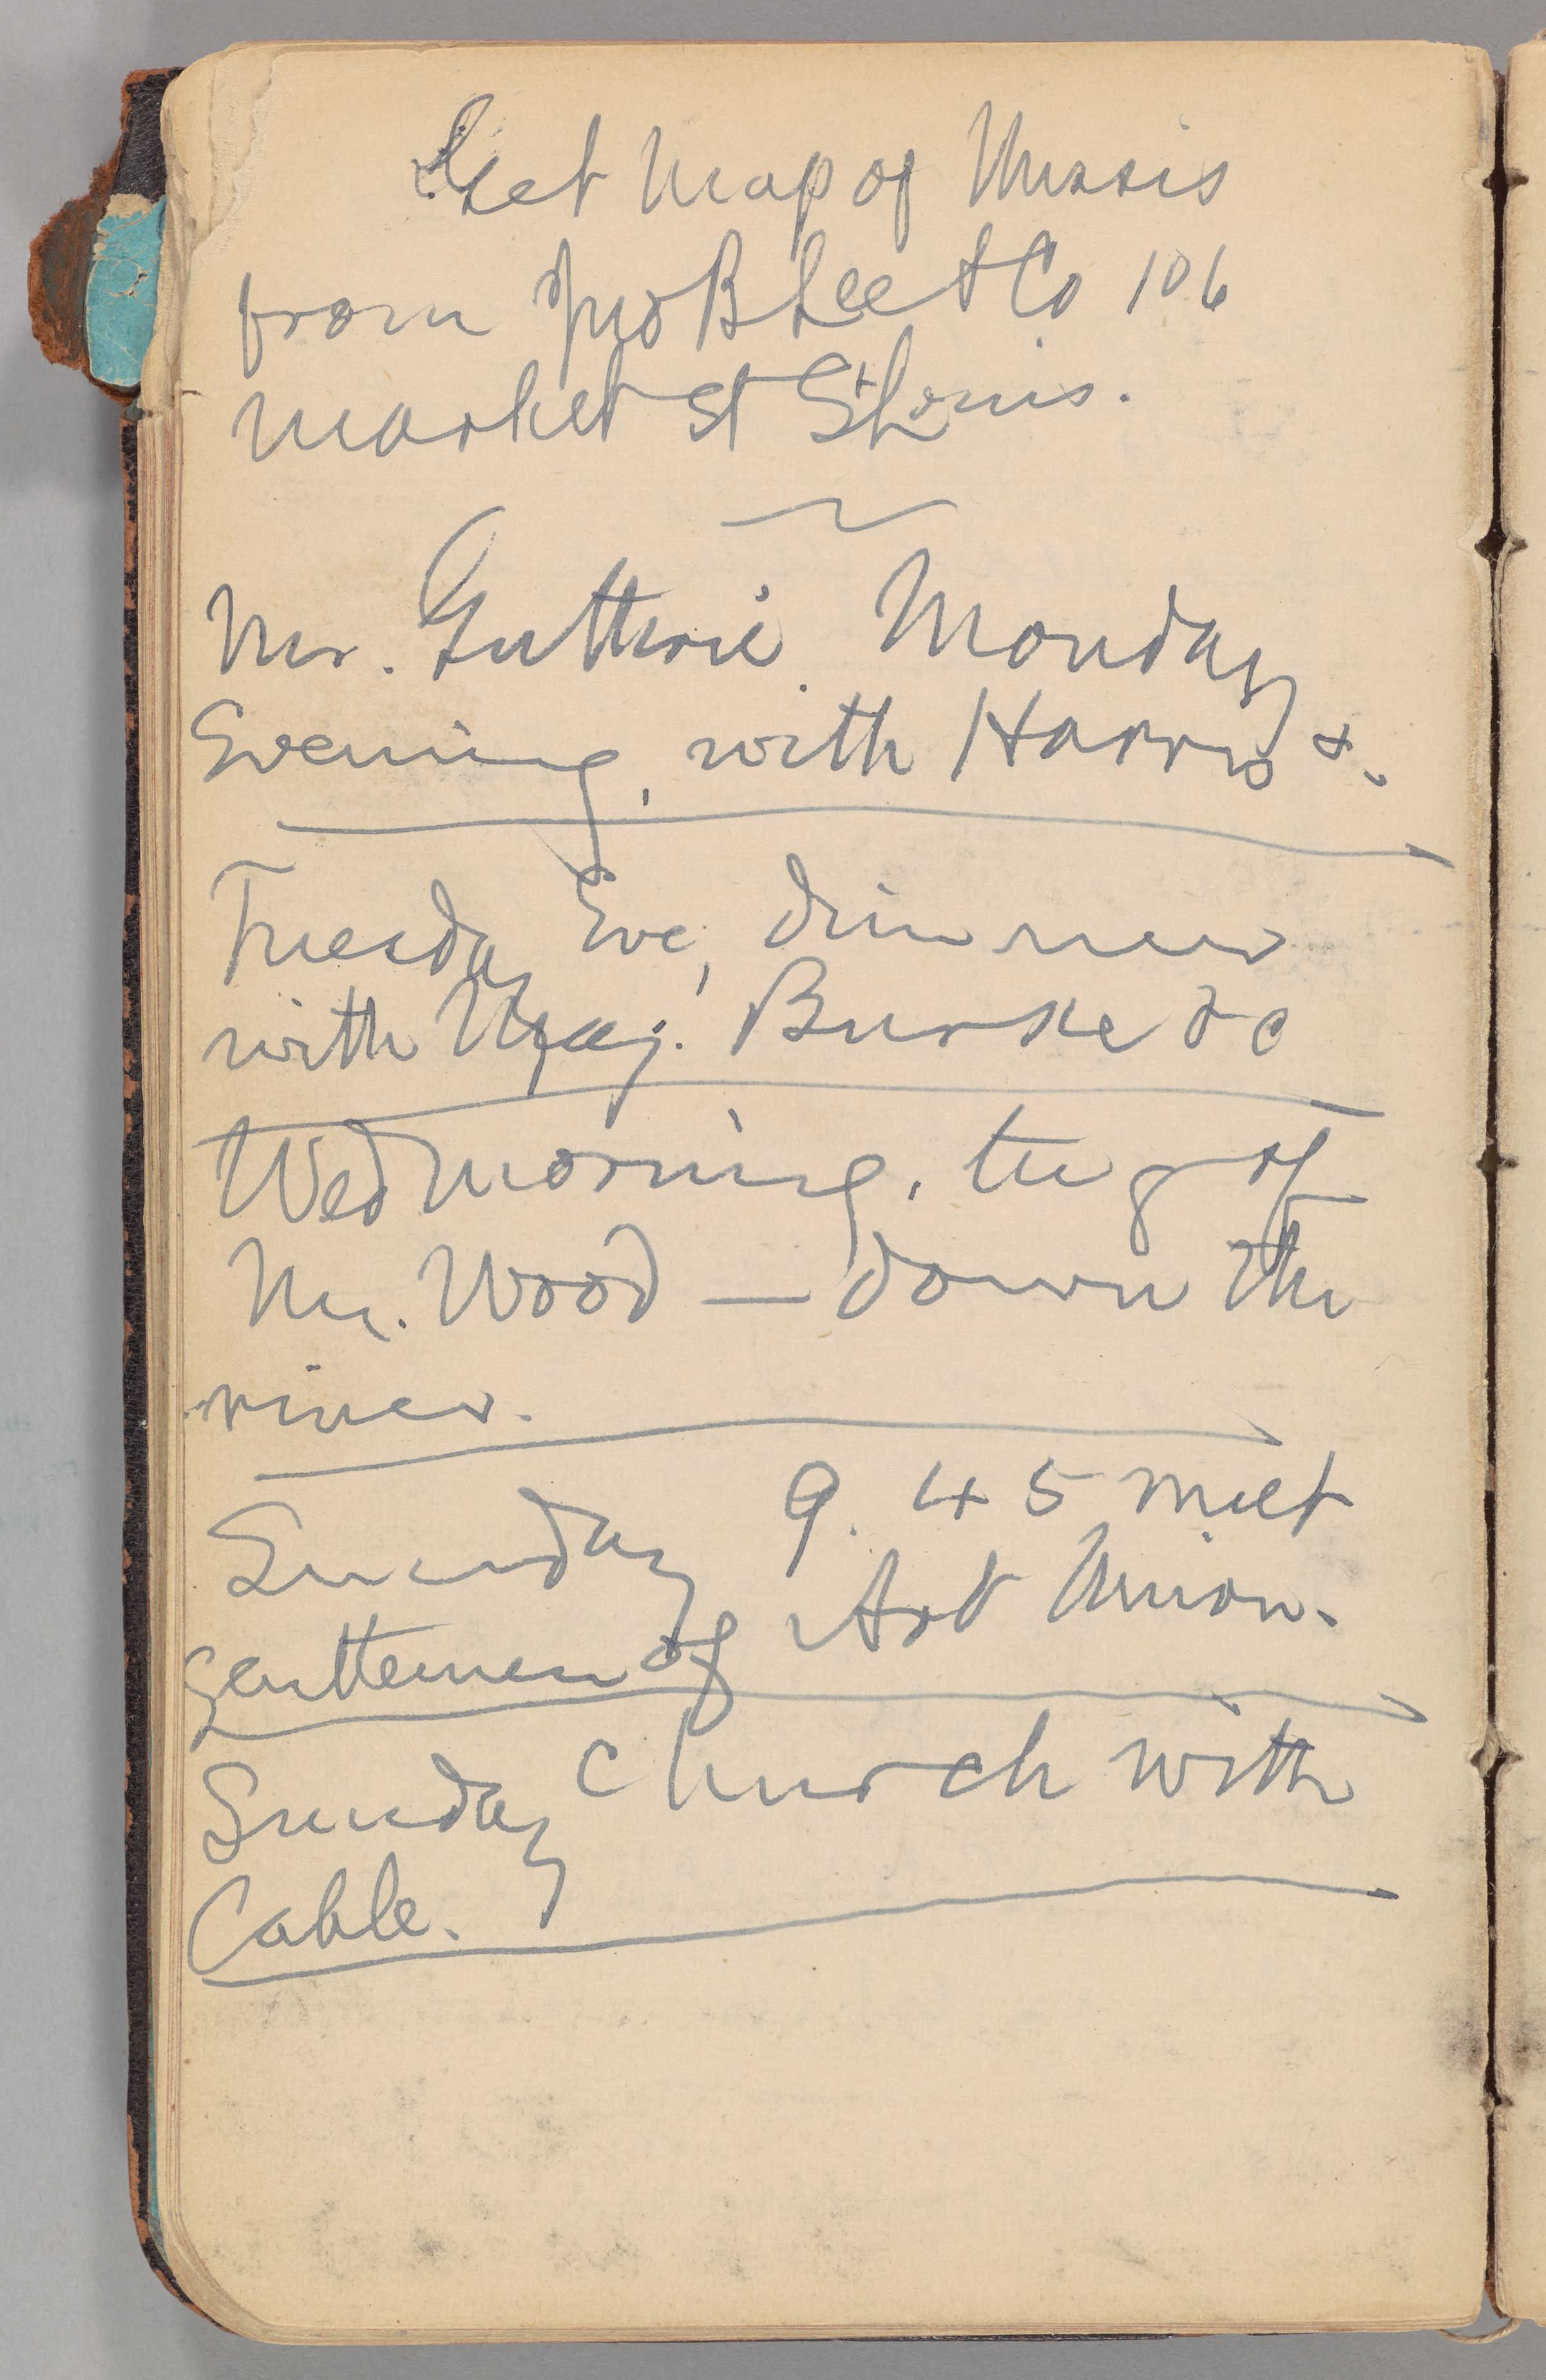 Get Map of Missis
from Jno B Lee & Co 106
Market St St Louis.
Mr. Guthrie. Monday
Evening, with Harris &.
Tuesday Eve, dinner
with Maj. Burke &c
Wed morning, tug of
Mr. Wood — down the
river.
Sunday 9.45 meet
gentlemen of Art Union.
Sunday Church with
Cable.